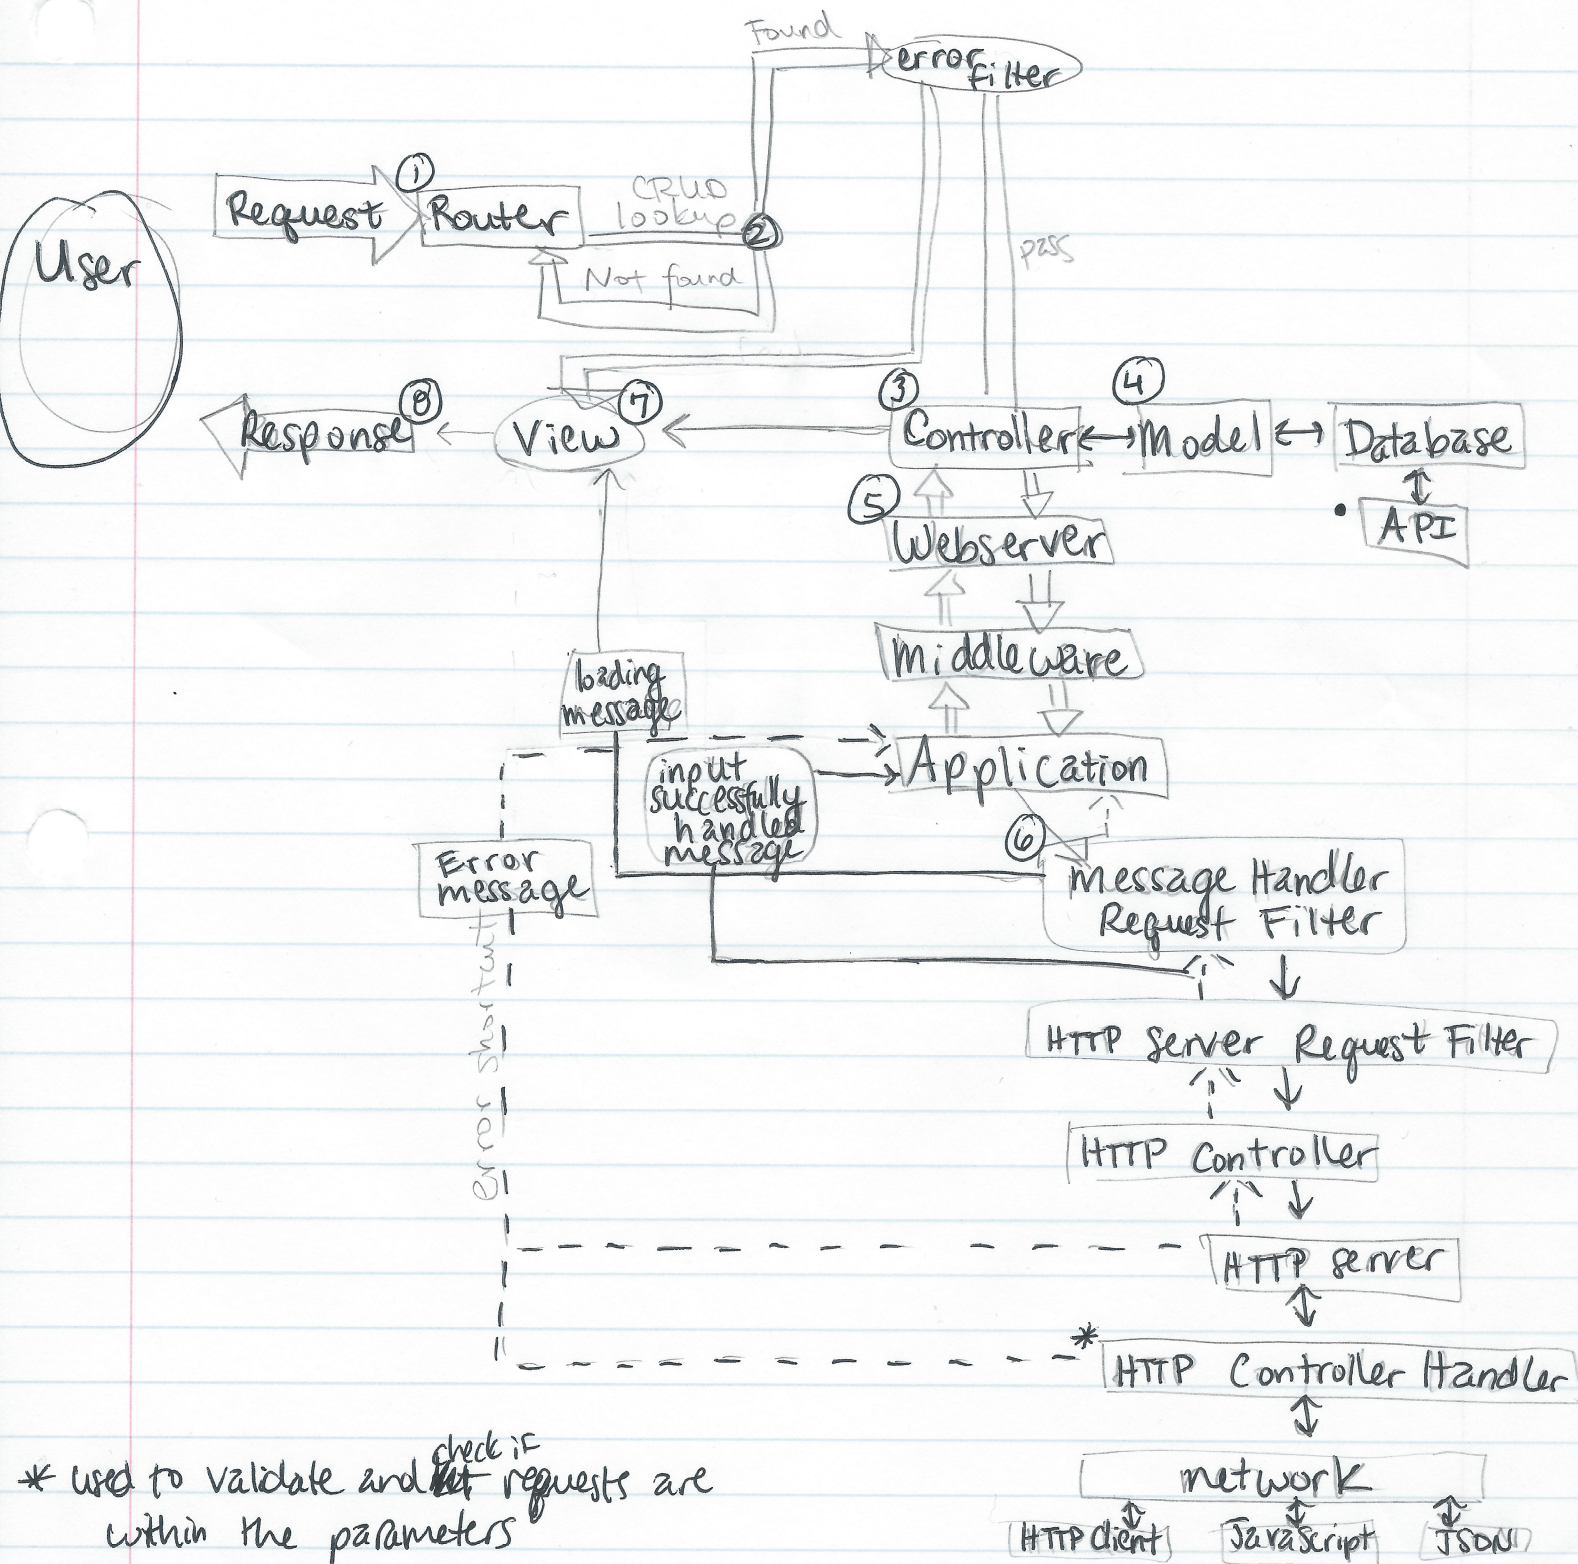 Found
error
filter
①
Request
Router
CRUD
lookup
②
Not found
pass
User
⑧
Response
⑦
View
③
Controller
④
Model
Database
API
⑤
Webserver
Middleware
loading
message
Application
input
successfully
handled
message
⑥
Error
message
Message Handler
Request Filter
error shortcut
HTTP Server Request Filter
HTTP Controller
HTTP server
* HTTP Controller Handler
network
HTTP client
JavaScript
JSON
check if
* used to validate and requests are
within the parameters